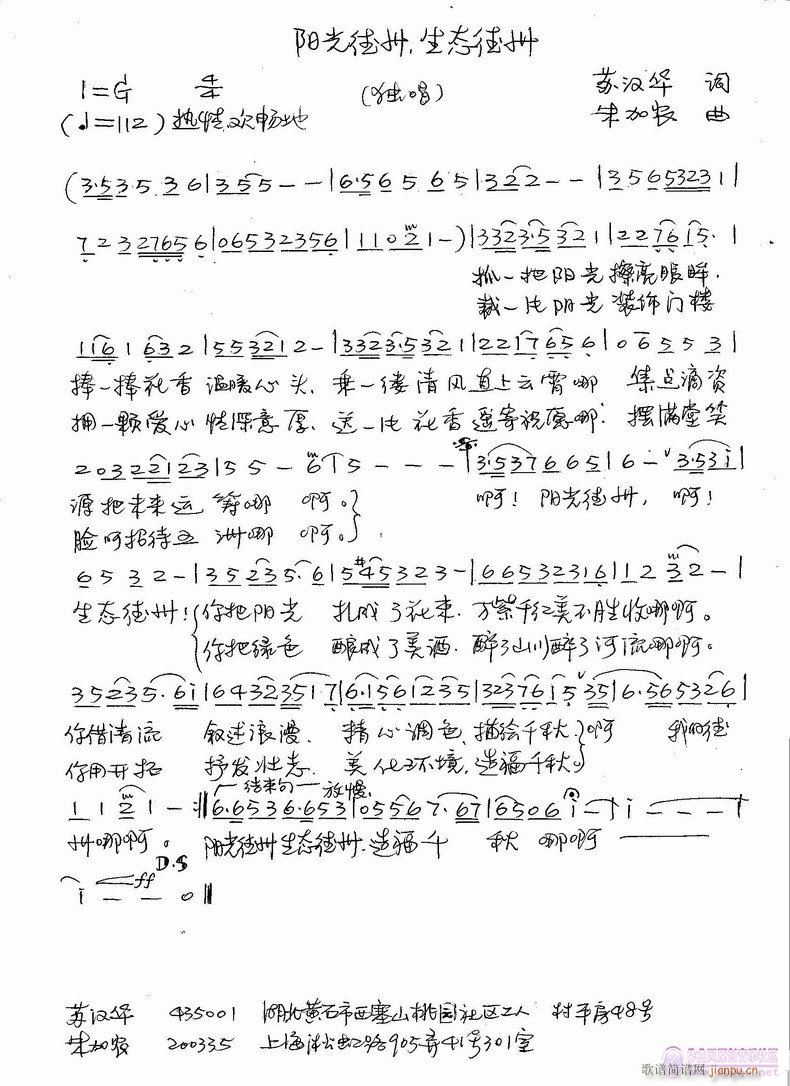 阳光德州，生态德州
1=G 4/4 （独唱） 苏汉华 词
（♩=112）热情欢畅地 朱加农 曲
(3·535 36|355--|6·56 5 65|322--|356532 31|
7 2 3 2765 6|06532356|1102 1-)|3323·5321|22761 5·|
抓一把阳光擦亮眼眸，
裁一片阴光装饰门楼
1161 632|553212-|3323·5321|2217656|06553|
捧一捧花香温暖心头，乘一缕清风直上云霄哪 集点滴资
拥一颗爱心情深意厚，送一片花香遥寄祝愿哪，摆满堂笑
20322123|55-6|5---|3·537665|6-3·53i|
源把未来运筹哪 啊。 啊！阳光德州，啊！
脸呵招待五洲哪 啊。
6532-|35235·6|5#45323-|66532316|1232-|
生态德州！你把阳光 扎成了花束，万紫千红美不胜收哪啊。
你把绿色 酿成了美酒，醉了山川醉了河流哪啊。
35235·6i|643235 17|6·1561235|3237 6i5 35|6·565326|
你借清流 叙述浪漫，精心调色，描绘千秋。啊 我的德
你用开拓 抒发壮志，美化环境，造福千秋。
结束句 放慢
1121-:‖6·6536·653|05567·67|6506i-|i---|
州哪啊。 阳光德州生态德州，造福千 秋 哪啊
D.S
ff
i--0‖
苏汉华 435001 湖北黄石市西塞山桃园社区工人村平房48号
朱加农 200335 上海淞虹路905弄41号301室
歌谱简谱网 jianpu.cn